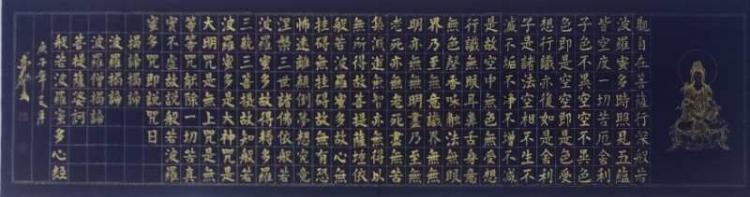 觀自在菩薩行深般若
波羅蜜多時照見五蘊
皆空度一切苦厄舍利
子色不異空空不異色
色即是空空即是色受
想行識亦復如是舍利
子是諸法空相不生不
滅不垢不淨不增不減
是故空中無色無受想
行識無眼耳鼻舌身意
無色聲香味觸法無眼
界乃至無意識界無無
明亦無無明盡乃至無
老死亦無老死盡無苦
集滅道無智亦無得以
無所得故菩提薩埵依
般若波羅蜜多故心無
挂礙無挂礙故無有恐
怖遠離顛倒夢想究竟
涅槃三世諸佛依般若
波羅蜜多故得耨多羅
三藐三菩提故知般若
波羅蜜多是大神咒是
大明咒是無上咒是無
等等咒能除一切苦真
實不虛故說般若波羅
蜜多咒即說咒曰
揭諦揭諦
波羅揭諦
波羅僧揭諦
菩提薩婆訶
般若波羅蜜多心經
庚子年